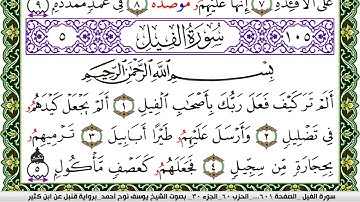 عَلَى الْأَفْئِدَةِ ٧ إِنَّهَا عَلَيْهِمُ مُوصَدَةٌ ٨ فِي عَمَدٍ مُمَدَّدَةٍ ٩
١٠٥ سُورَةُ الْفِيلِ ٥
بِسْمِ اللَّهِ الرَّحْمَٰنِ الرَّحِيمِ
أَلَمْ تَرَ كَيْفَ فَعَلَ رَبُّكَ بِأَصْحَٰبِ الْفِيلِ ١ أَلَمْ يَجْعَلْ كَيْدَهُمُ
فِي تَضْلِيلٍ ٢ وَأَرْسَلَ عَلَيْهِمُ طَيْرًا أَبَابِيلَ ٣ تَرْمِيهِمُ
بِحِجَارَةٍ مِّن سِجِّيلٍ ٤ فَجَعَلَهُمُ كَعَصْفٍ مَّأْكُولٍ ٥
سورة الفيل _الصفحة ٦٠١ ... الحزب ٦٠_الجزء ٣٠ _ بصوت الشيخ يوسف نوح أحمد_ برواية قنبل عن ابن كثير